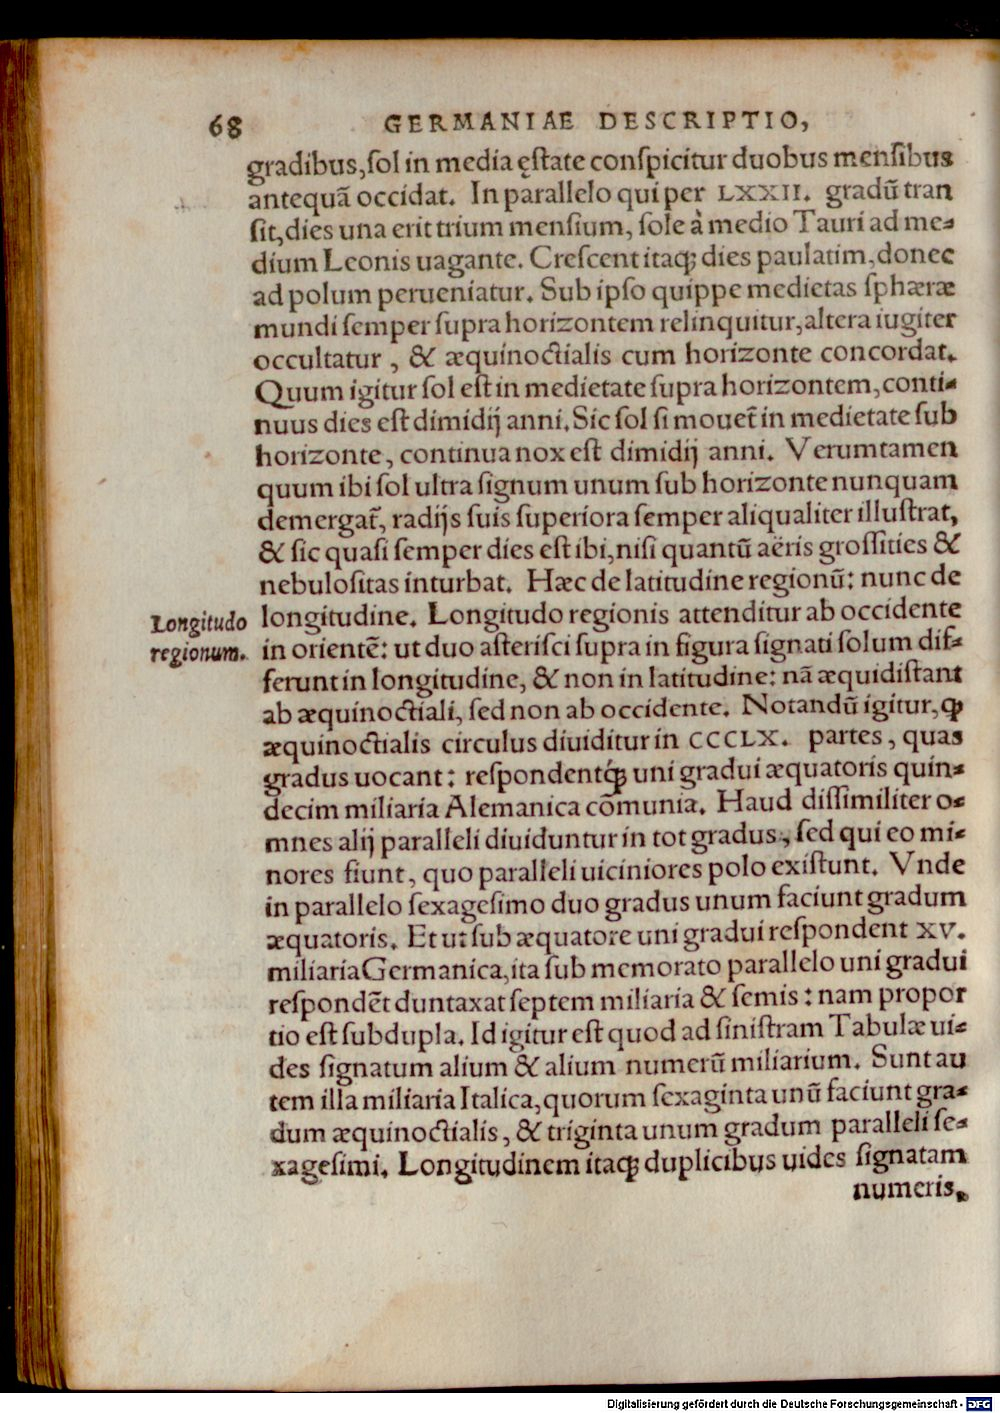 68 GERMANIAE DESCRIPTIO,
gradibus, sol in media ęstate conspicitur duobus mensibus
antequã occidat. In parallelo qui per LXXII. gradũ tran
sit, dies una erit trium mensium, sole à medio Tauri ad me-
dium Leonis uagante. Crescent itaq; dies paulatim, donec
ad polum perueniatur. Sub ipso quippe medietas sphæræ
mundi semper supra horizontem relinquitur, altera iugiter
occultatur, & æquinoctialis cum horizonte concordat.
Quum igitur sol est in medietate supra horizontem, conti-
nuus dies est dimidij anni. Sic sol si mouet̃ in medietate sub
horizonte, continua nox est dimidij anni. Verumtamen
quum ibi sol ultra signum unum sub horizonte nunquam
demergat̃, radijs suis superiora semper aliqualiter illustrat,
& sic quasi semper dies est ibi, nisi quantũ aëris grossities &
nebulositas inturbat. Hæc de latitudine regionũ: nunc de
Longitudo
regionum.
longitudine. Longitudo regionis attenditur ab occidente
in orientẽ: ut duo asterisci supra in figura signati solum dif-
ferunt in longitudine, & non in latitudine: nã æquidistant
ab æquinoctiali, sed non ab occidente. Notandũ igitur, ꝙ
æquinoctialis circulus diuiditur in CCCLX. partes, quas
gradus uocant: respondentq́; uni gradui æquatoris quin-
decim miliaria Alemanica cõmunia. Haud dissimiliter o-
mnes alij paralleli diuiduntur in tot gradus, sed qui eo mi-
nores fiunt, quo paralleli uiciniores polo existunt. Vnde
in parallelo sexagesimo duo gradus unum faciunt gradum
æquatoris. Et ut sub æquatore uni gradui respondent XV.
miliaria Germanica, ita sub memorato parallelo uni gradui
respondẽt duntaxat septem miliaria & semis: nam propor
tio est subdupla. Id igitur est quod ad sinistram Tabulæ ui-
des signatum alium & alium numerũ miliarium. Sunt au
tem illa miliaria Italica, quorum sexaginta unũ faciunt gra-
dum æquinoctialis, & triginta unum gradum paralleli se-
xagesimi. Longitudinem itaq; duplicibus uides signatam
numeris,
Digitalisierung gefördert durch die Deutsche Forschungsgemeinschaft - DFG